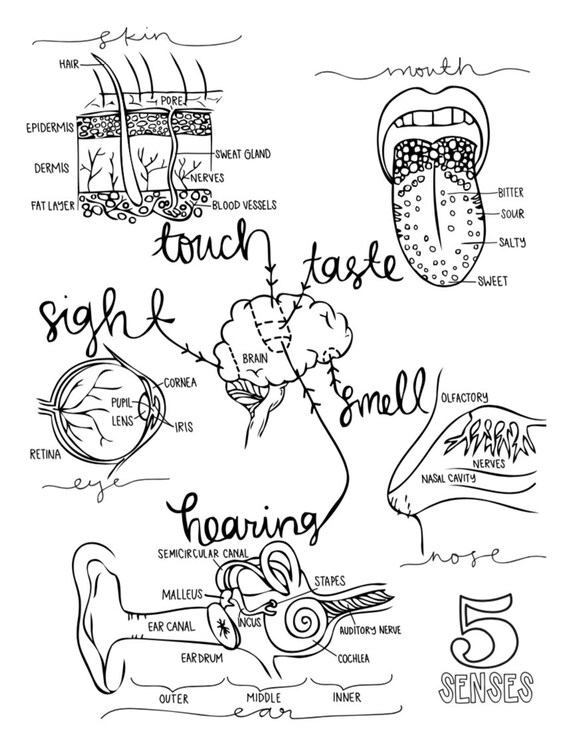 skin
HAIR
PORE
EPIDERMIS
SWEAT GLAND
DERMIS
NERVES
FAT LAYER
BLOOD VESSELS
mouth
BITTER
SOUR
SALTY
SWEET
touch
taste
sight
BRAIN
smell
CORNEA
PUPIL
LENS
IRIS
RETINA
eye
OLFACTORY
NERVES
NASAL CAVITY
nose
hearing
SEMICIRCULAR CANAL
MALLEUS
STAPES
INCUS
EAR CANAL
AUDITORY NERVE
EARDRUM
COCHLEA
OUTER
MIDDLE
INNER
ear
5
SENSES